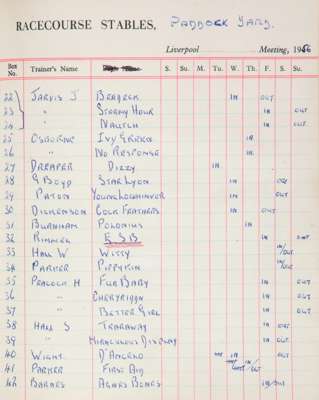 RACECOURSE STABLES, PADDOCK YARD.
Liverpool Meeting, 1956
Box No. Trainer's Name S. Su. M. Tu. W. Th. F. S. Su.
22 JARVIS J BEADECK IN OUT
23 " STORMY HOUR IN OUT
24 " NAUTCH IN OUT
25 OSBORNE IVY GREEN IN
26 " NO RESPONSE IN
27 DREAPER DIZZY IN
28 G BOYD STAR LYON IN OUT
29 PATON YOUNG LOCHINVER IN OUT
30 DICKENSON COCK FEATHERS IN OUT
31 BURNHAM POLONIUS IN
32 RIMMELL E S B IN OUT
33 HALL W WITTY IN/OUT
34 PARKER PIPPYKIN IN/OUT
35 PEACOCK M FUR BABY IN OUT
36 " CHERYRIGGN IN OUT
37 " BETTER GIRL IN OUT
38 HALL S TEARAWAY IN OUT
39 " MIRACULOUS DISPLAY IN OUT
40 WIGHT D'ANGELO IN OUT
41 PARKER FIRST AID IN/OUT
42 BARNES AGNES BONES IN/OUT